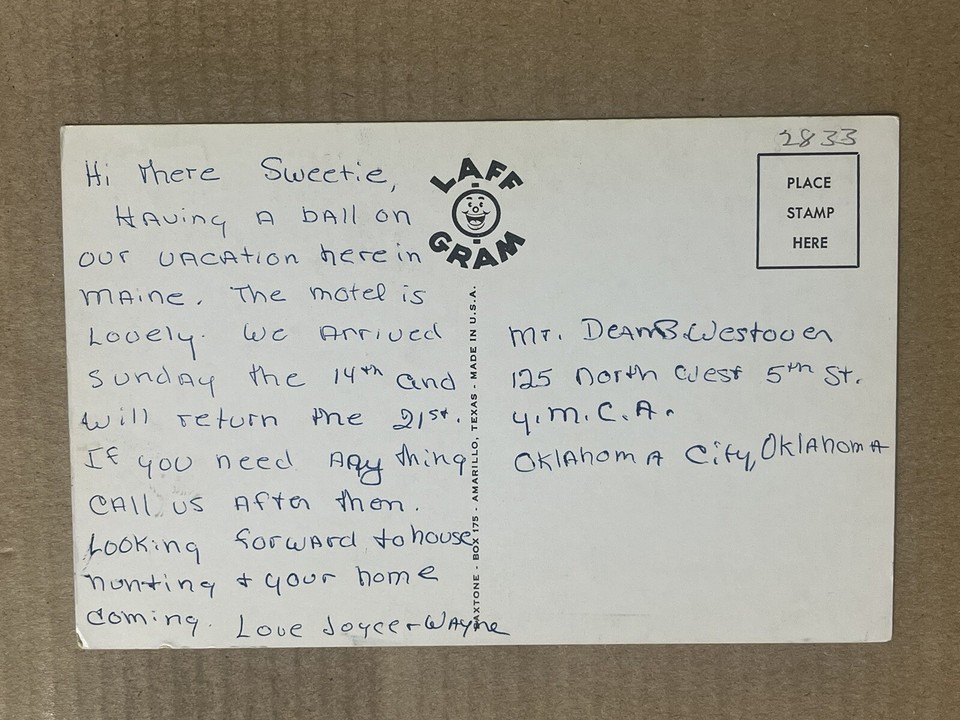 2833
PLACE
STAMP
HERE
LAFF
GRAM
Hi there Sweetie,
HAving A bALL on
our vACAtion here in
MAine. The motel is
Lovely. We Arrived
SundAy the 14th and
will return the 21st.
If you need Any thing
CALL us After then.
Looking forwArd to house
hunting + your home
coming. Love Joyce + WAyne
MAXTONE - BOX 175 - AMARILLO, TEXAS - MADE IN U.S.A.
Mr. DeAn B. Westover
125 North West 5th St.
Y.M.C.A.
OklAhomA City, OklAhomA